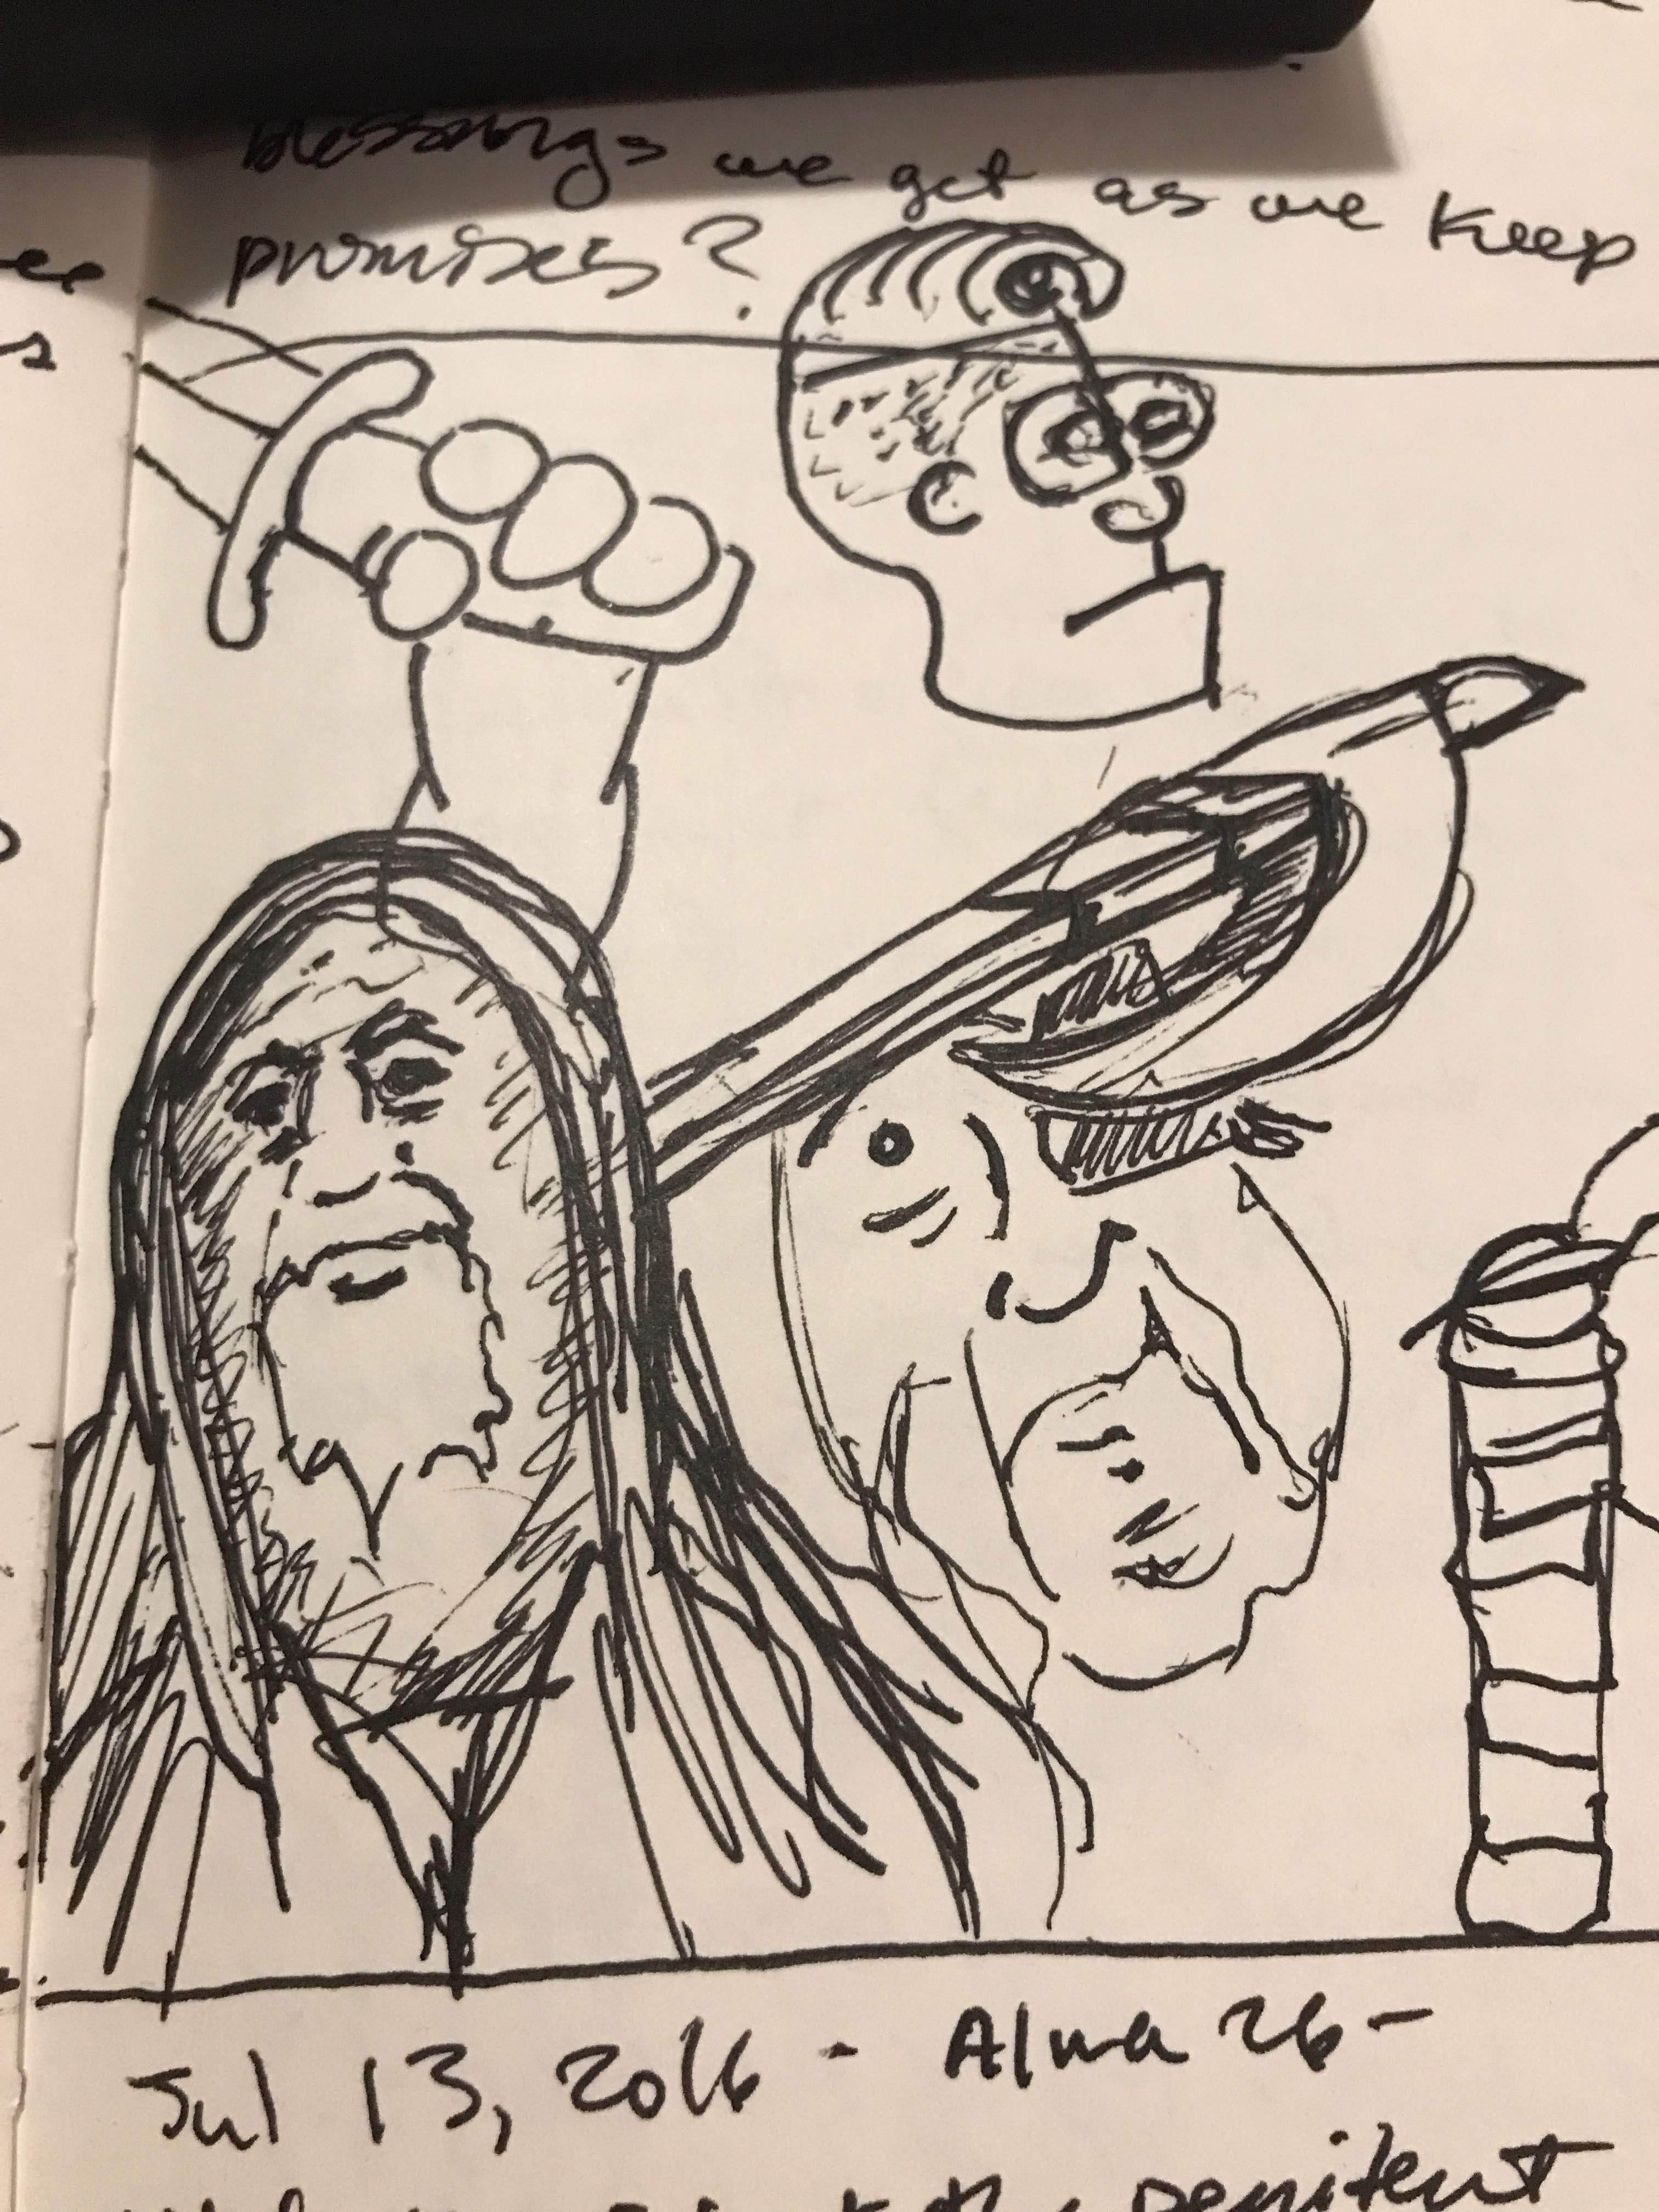 blessings we get as we keep
promises?
ee
s
Jul 13, 2016 - Alma 26 -
the penitent